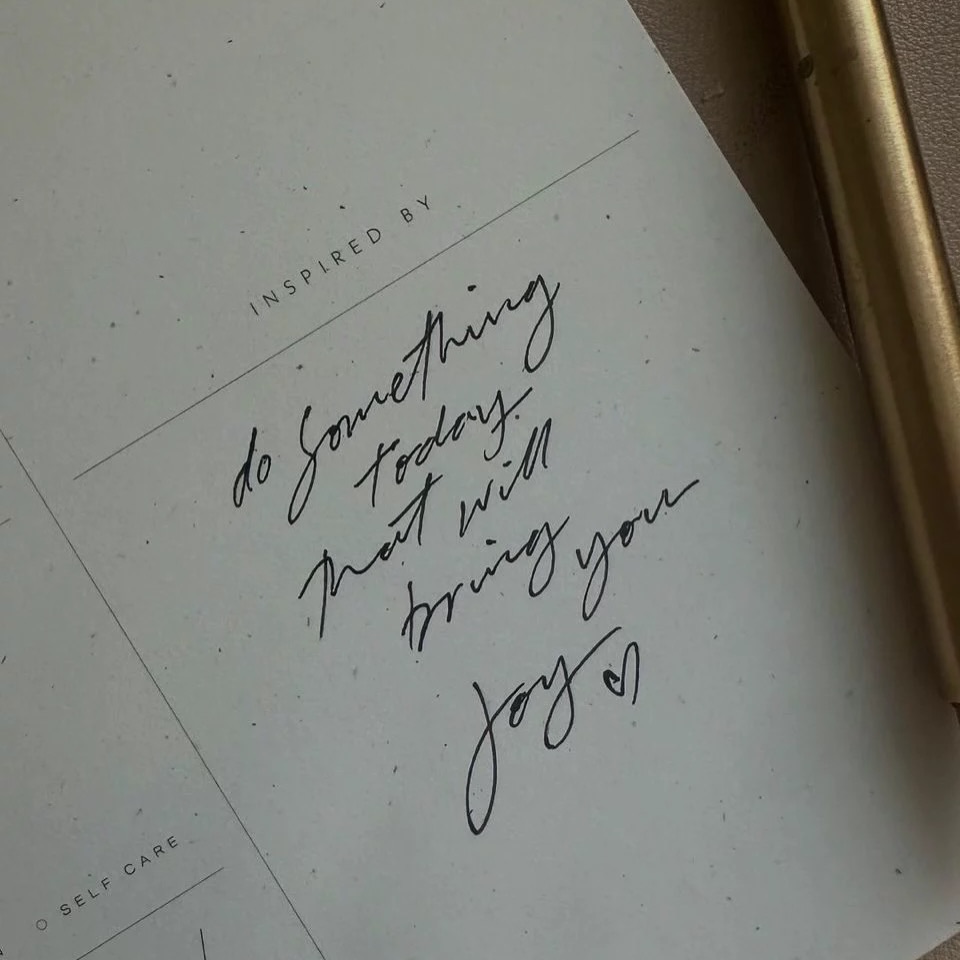 INSPIRED BY
do something
today.
that will
bring you
joy ♡
SELF CARE